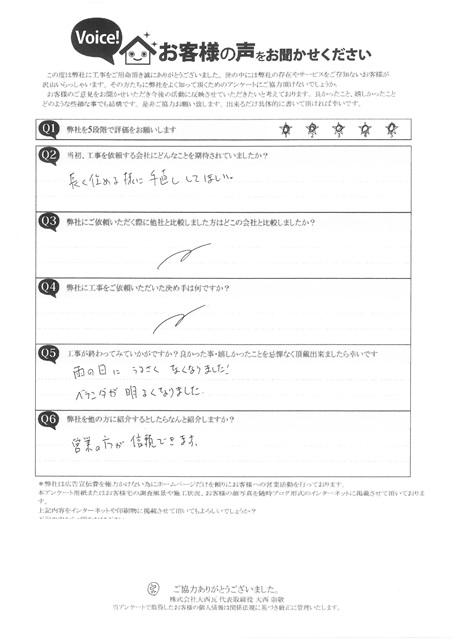 Voice!
お客様の声をお聞かせください
この度は弊社に工事をご用命頂き誠にありがとうございました。世の中には弊社の存在やサービスをご存知ないお客様が
沢山いらっしゃいます。その方たちに弊社をよく知って頂くためのアンケートにご協力頂けないでしょうか。
お客様のご意見をお聞かせいただき今後の活動に反映させていただきたいと考えております。良かったこと、嬉しかったこと
どのような些細な事でも結構です。是非ご協力お願い致します。出来るだけ具体的に書いて頂ければ幸いです。
Q1 弊社を5段階で評価をお願いします
Q2 当初、工事を依頼する会社にどんなことを期待されていましたか?
長く住める様に手直ししてほしい。
Q3 弊社にご依頼いただく際に他社と比較しました方はどこの会社と比較しましたか?
Q4 弊社に工事をご依頼いただいた決め手は何ですか?
Q5 工事が終わってみていかがですか?良かった事・嬉しかったことを忌憚なく頂戴出来ましたら幸いです
雨の日に うるさく なくなりました!
ベランダが 明るくなりました.
Q6 弊社を他の方に紹介するとしたらなんと紹介しますか?
営業の方が信頼できます。
*弊社は広告宣伝費を極力かけない為にホームページだけを頼りにお客様への営業活動を行っております。
本アンケート用紙またはお客様宅の調査風景や施工状況、お客様の顔写真を随時ブログ形式のインターネットに掲載させて頂いております。
上記内容をインターネットや印刷物に掲載させて頂いてもよろしいでしょうか?
ご協力ありがとうございました。
株式会社大西瓦 代表取締役 大西 崇敬
当アンケートで取得したお客様の個人情報は関係法規に基づき厳正に管理いたします。